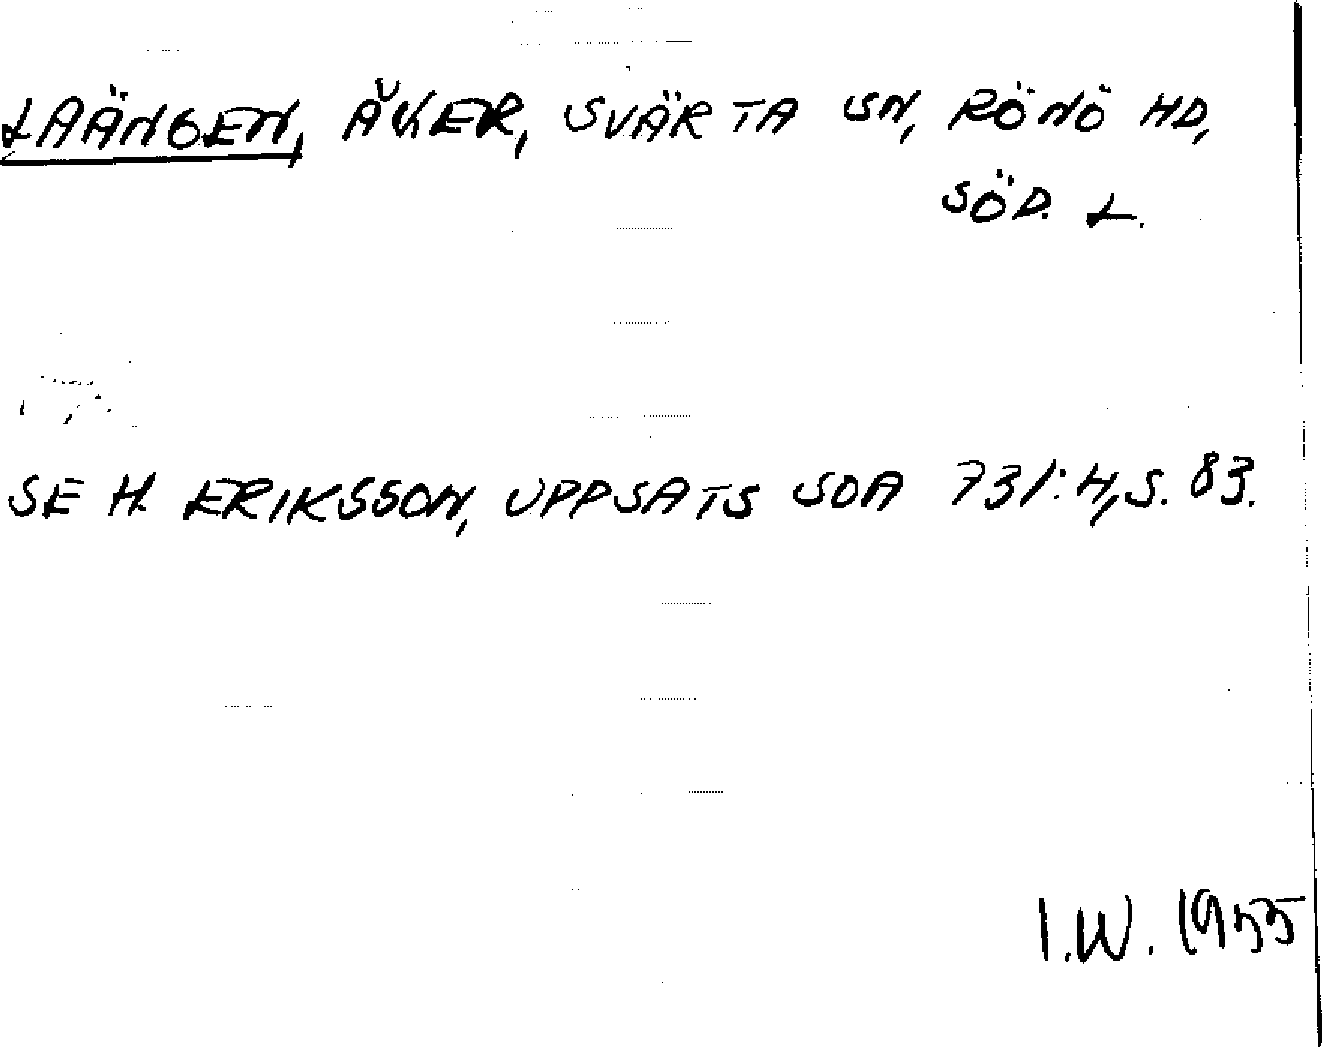 LAÄNGEN, ÅKER, SVÄRTA SN, RÖNÖ HD,
SÖD. L.
SE H. ERIKSSON, UPPSATS SOA 731:4, S. 83.
I.W. 1955